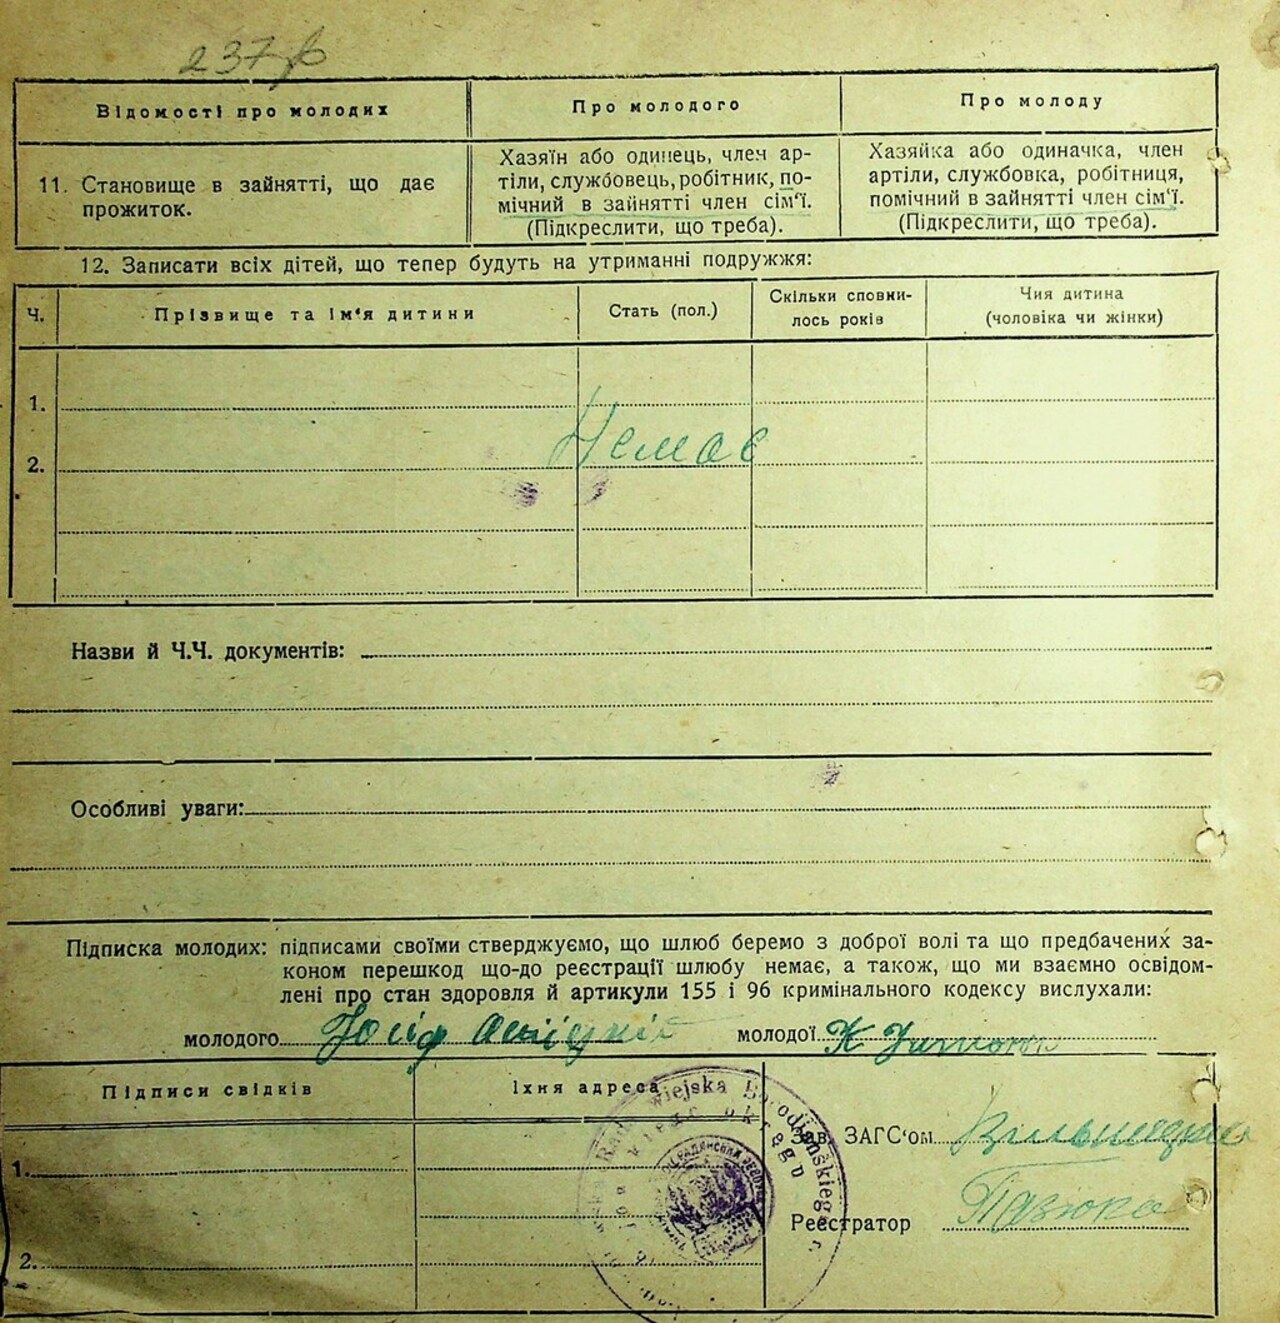 237
Відомості про молодих
Про молодого
Про молоду
11. Становище в зайнятті, що дає
прожиток.
Хазяїн або одинець, член ар-
тіли, службовець, робітник, по-
мічний в зайнятті член сім'ї.
(Підкреслити, що треба).
Хазяйка або одиначка, член
артіли, службовка, робітниця,
помічний в зайнятті член сім'ї.
(Підкреслити, що треба).
12. Записати всіх дітей, що тепер будуть на утриманні подружжя:
Ч.
Прізвище та ім'я дитини
Стать (пол.)
Скільки сповни-
лось років
Чия дитина
(чоловіка чи жінки)
1.
Немає
2.
Назви й Ч.Ч. документів:
Особливі уваги:
Підписка молодих: підписами своїми стверджуємо, що шлюб беремо з доброї волі та що предбачених за-
коном перешкод що-до реєстрації шлюбу немає, а також, що ми взаємно освідом-
лені про стан здоровля й артикули 155 і 96 кримінального кодексу вислухали:
молодого Йосіф молодої К
Підписи свідків
їхня адреса
Зав. ЗАГС'ом
1.
Реєстратор
2.